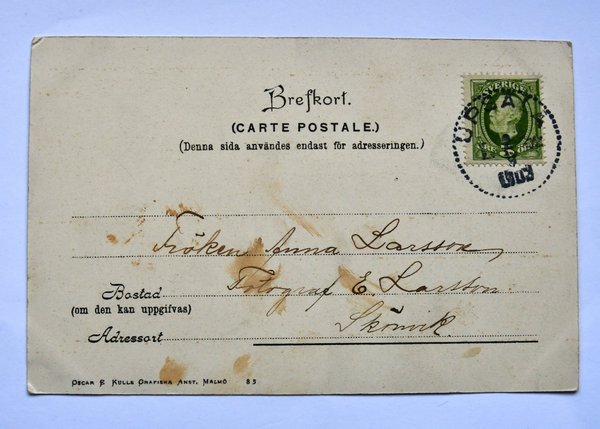 Brefkort.
(CARTE POSTALE.)
(Denna sida användes endast för adresseringen.)
SVERIGE
UPSALA
1903
Fröken Anna Larsson,
Fotograf E. Larsson.
Bostad
(om den kan uppgifvas)
Skönvik.
Adressort
OSCAR F. KULLS GRAFISKA ANST. MALMÖ 85